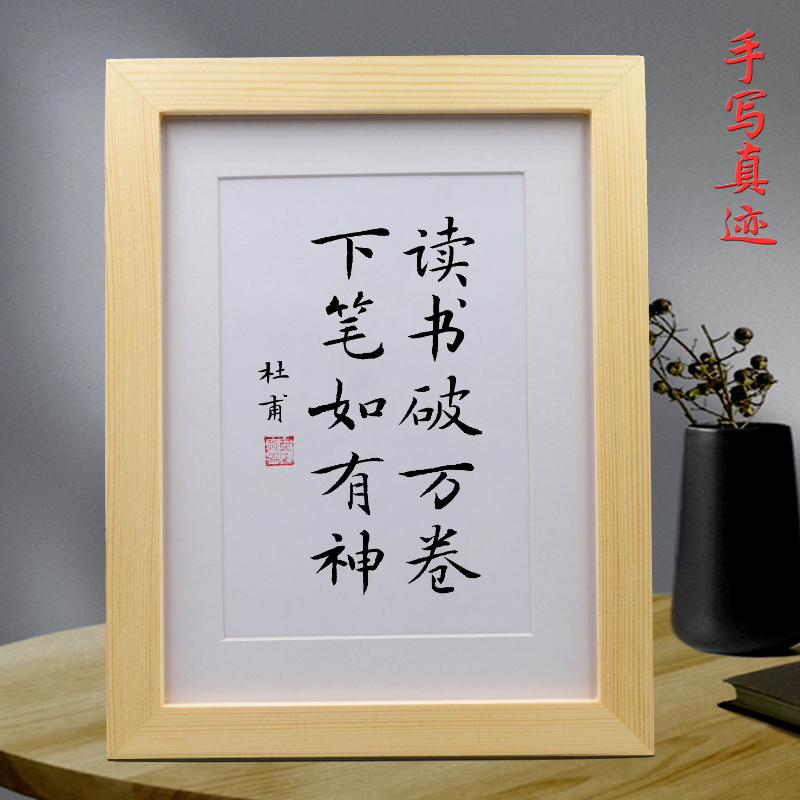 读书破万卷
下笔如有神
杜甫
手写真迹